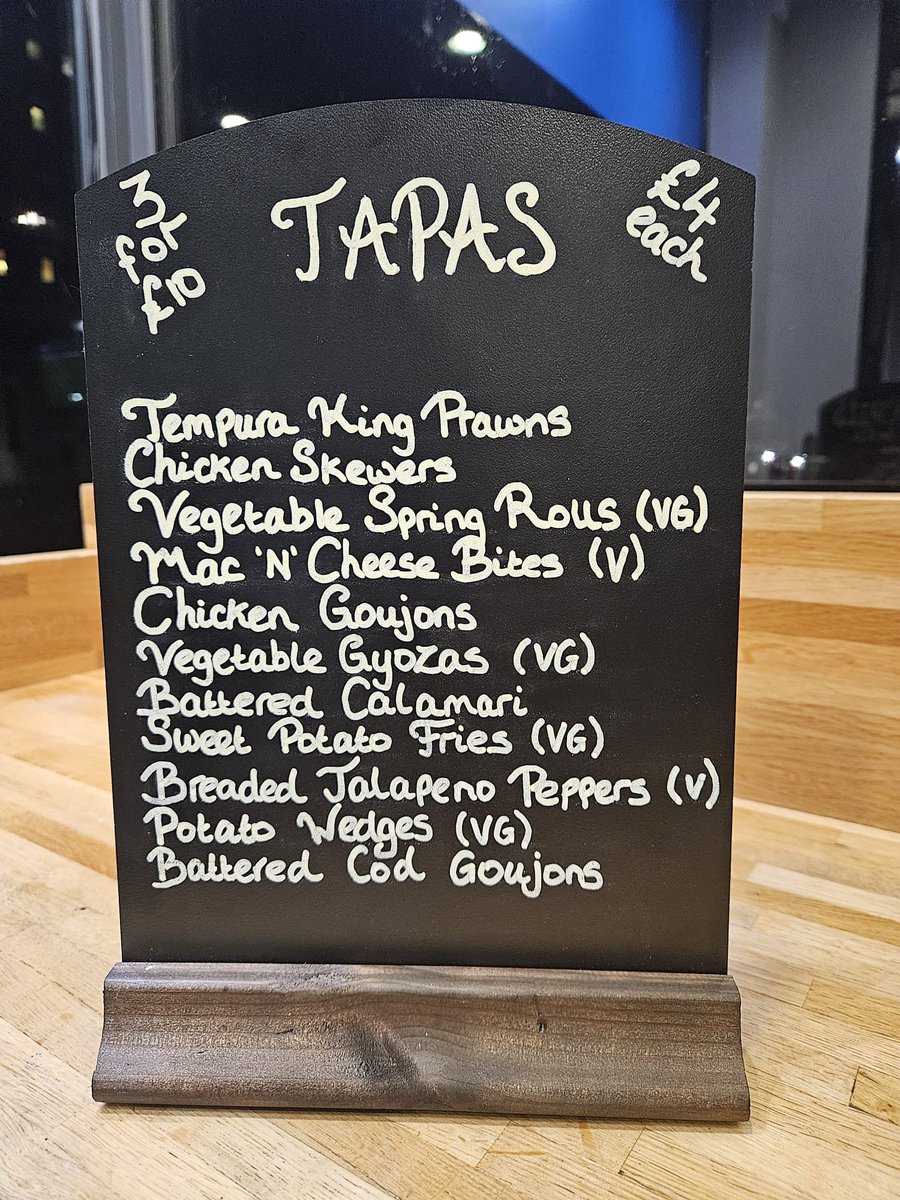 3
for
£10
TAPAS
£4
each
Tempura King Prawns
Chicken Skewers
Vegetable Spring Rolls (VG)
Mac 'N' Cheese Bites (V)
Chicken Goujons
Vegetable Gyozas (VG)
Battered Calamari
Sweet Potato Fries (VG)
Breaded Jalapeno Peppers (V)
Potato Wedges (VG)
Battered Cod Goujons